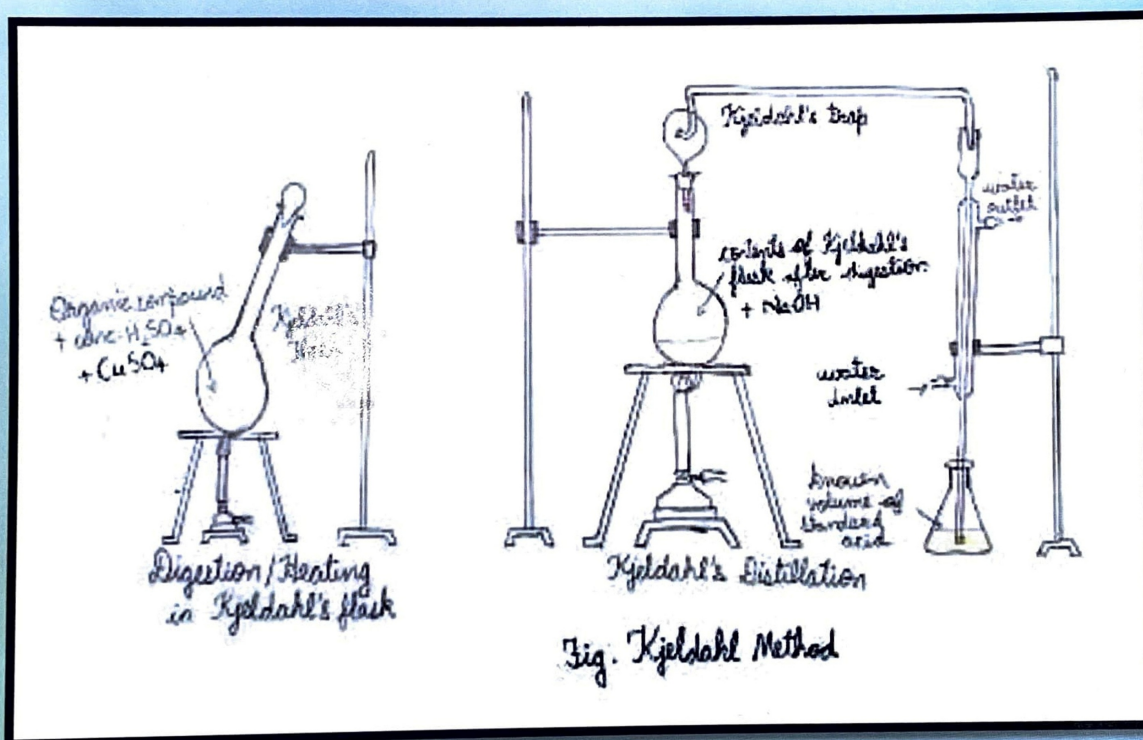 Organic compound
+ conc. H₂SO₄
+ CuSO₄
Kjeldahl's
Digestion/Heating
in Kjeldahl's flask
Kjeldahl's trap
water
outlet
contents of Kjeldahl's
flask after digestion.
+ NaOH
water
inlet
known
volume of
standard
acid
Kjeldahl's Distillation
Fig. Kjeldahl Method